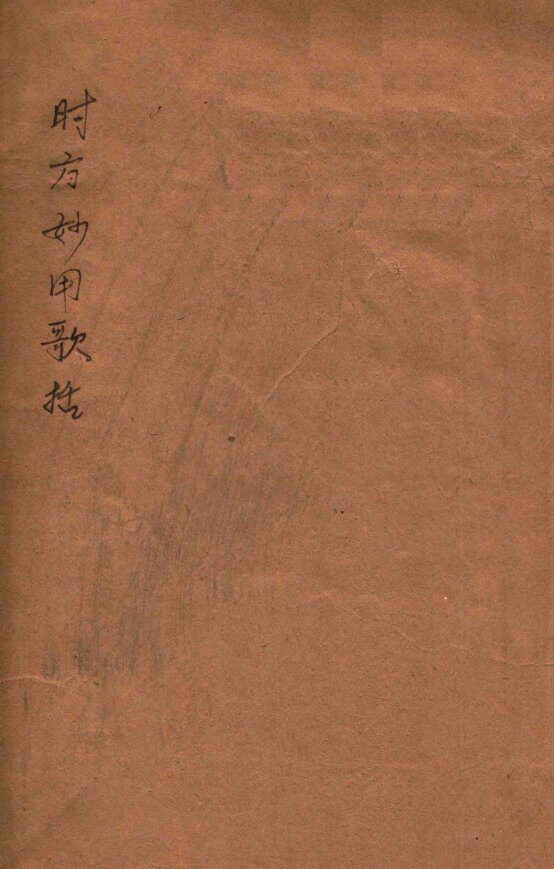 时方妙用歌括